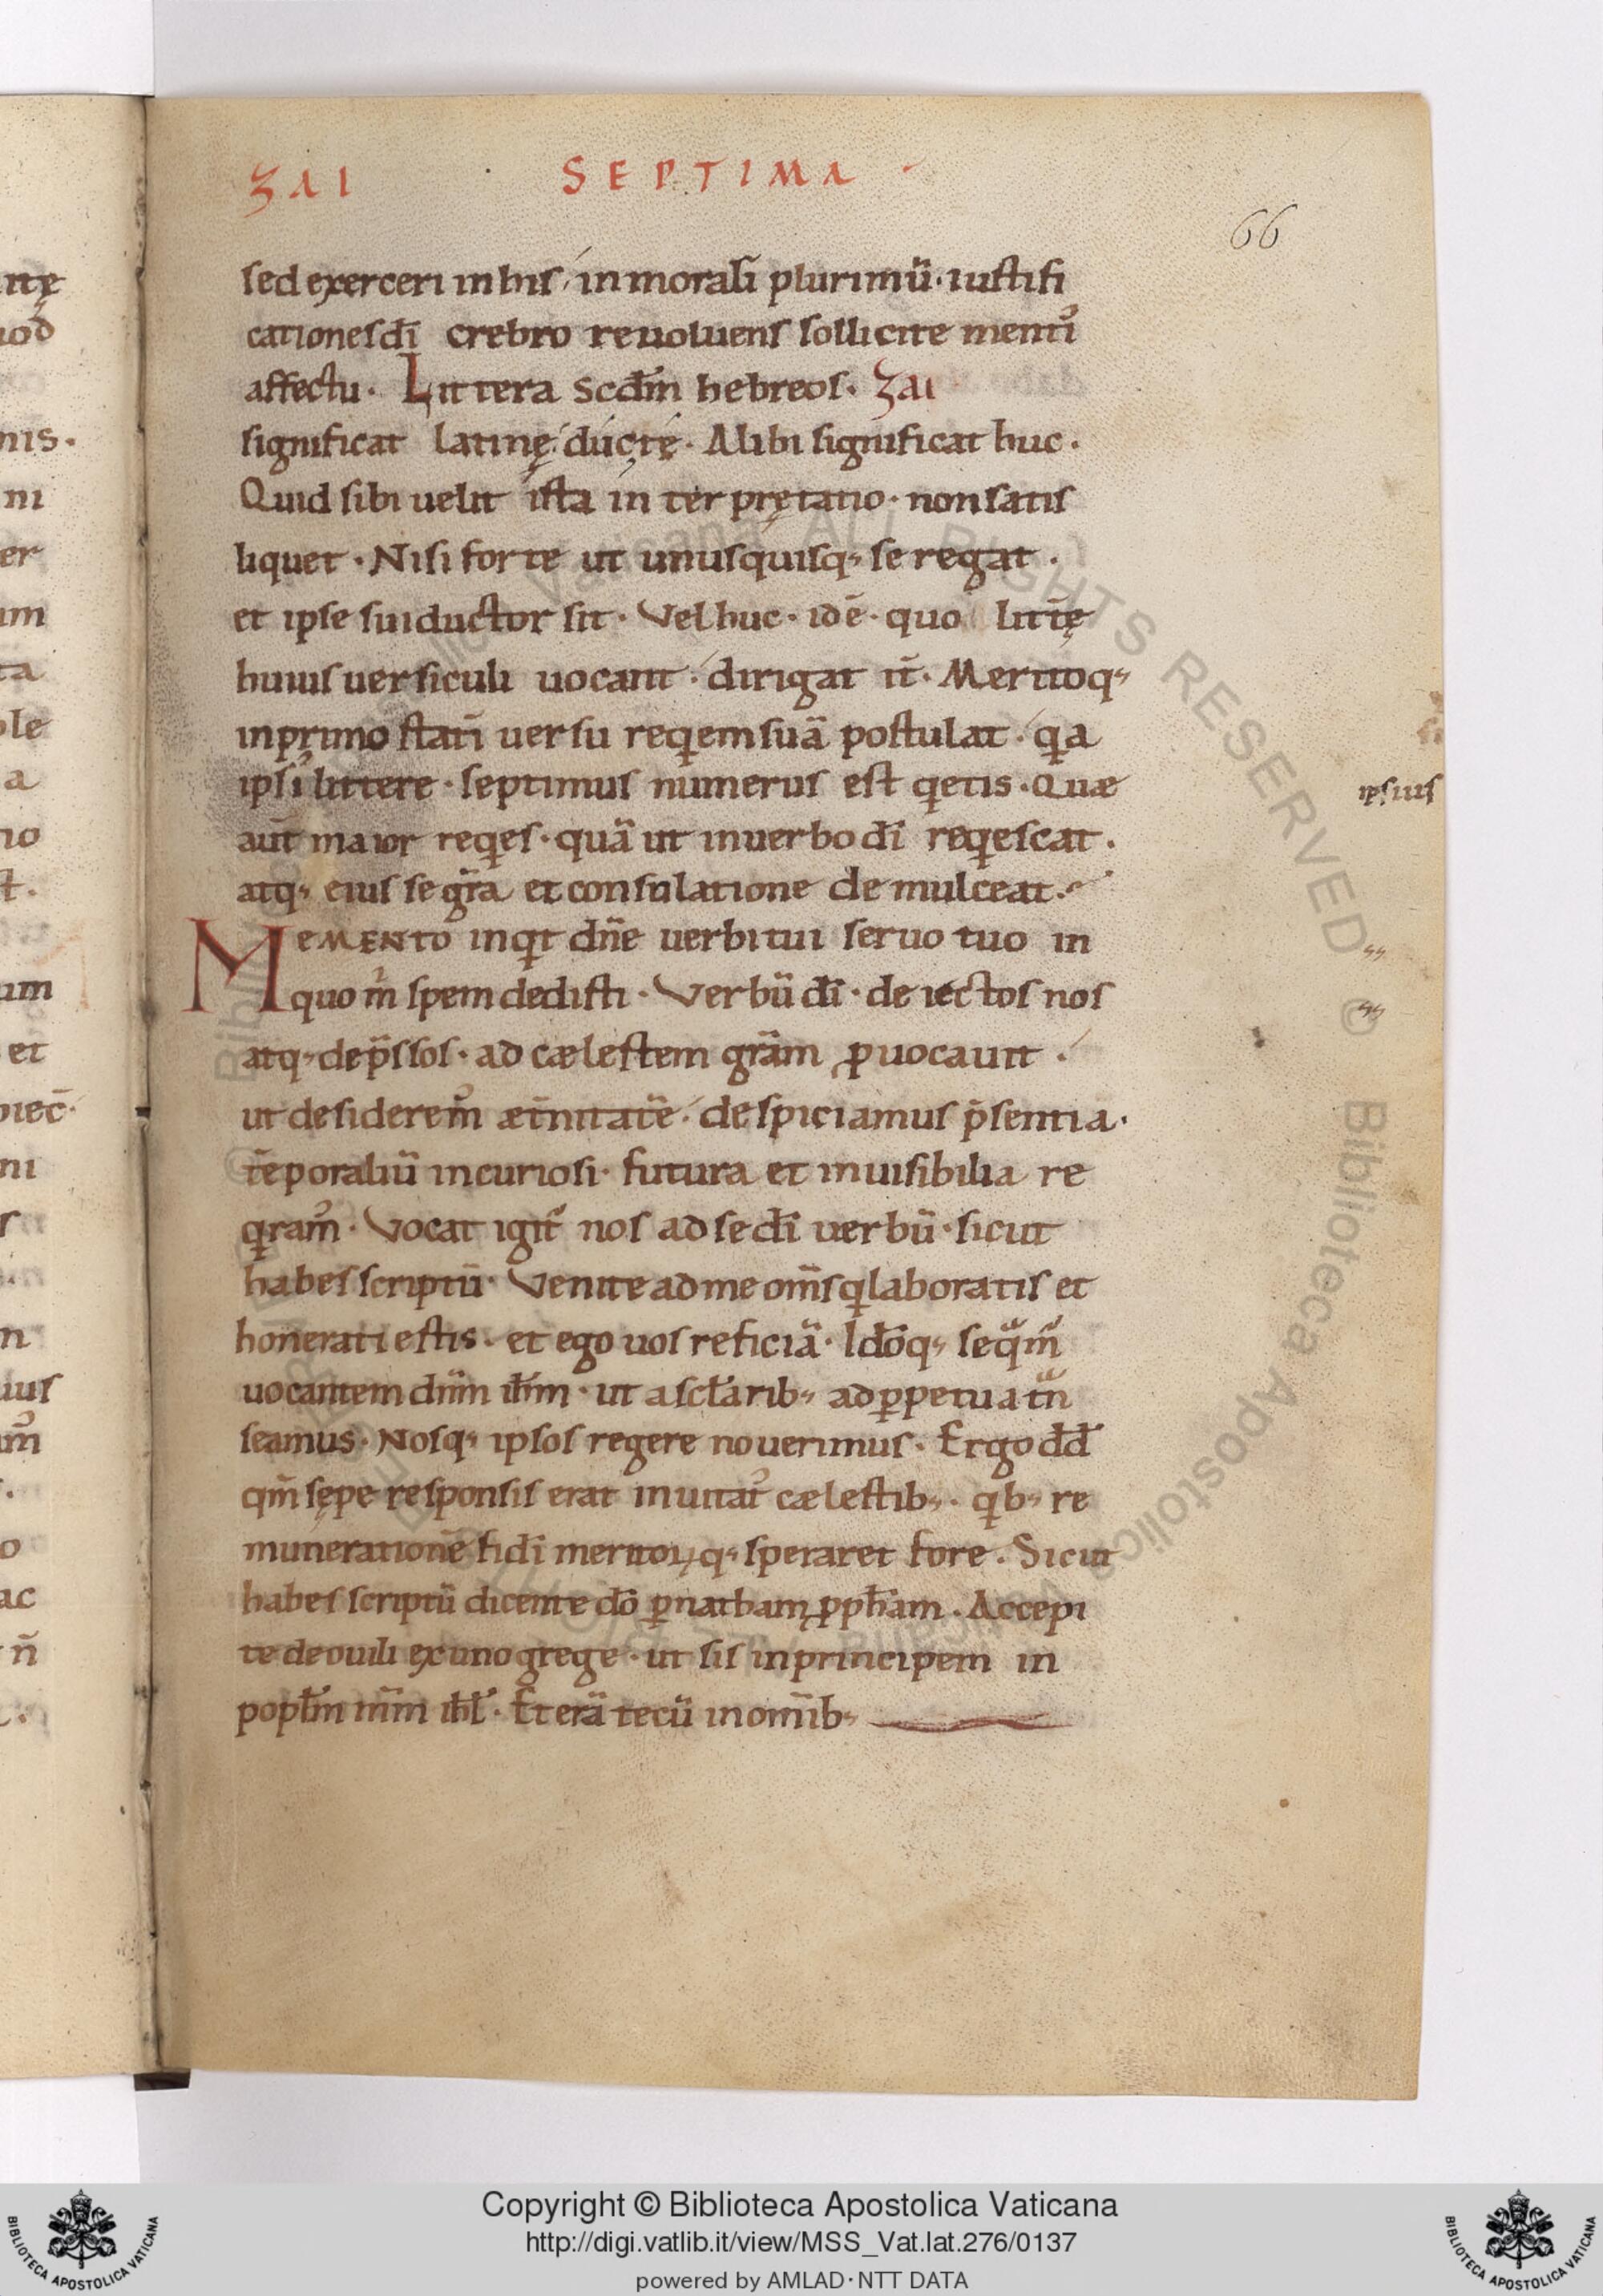 ZAI SEPTIMA
66
sed exerceri in his, in morali plurimū. iustifi
cationes dī crebro reuoluens sollicite menti᾽
affectu. Littera scdm̄ hebreos. zai
significat latinę; ducte. Alibi significat huc.
Quid sibi uelit ista in ter prętatio. non satis
liquet. Nisi forte ut unusquisq; se regat.
et ipse sui ductor sit. Vel huc. idē. quo litt̄ę
huius uersiculi uocant. dirigat it̄. Meritoq;
in primo statī uersu reqem suā postulat. qa
ipsi᾽ littere. septimus numerus est qetis. Quæ
aut̄ maior reqes. quā ut in uerbo dī reqescat.
atq; eius se gr̄a et consulatione de mulceat.
MEMENTO inqt dn̄e uerbi tui seruo tuo in
quo m̄ spem dedisti. Verbū dī. de iectos nos
atq; dep̄ssos. ad cælestem gr̄am ꝓuocauit.
ut desiderem᾽ æt̄nitatē. despiciamus p̄sentia.
tēporaliū incuriosi. futura et inuisibilia re
qram᾽. Vocat igit᾽ nos ad se dī uerbū. sicut
habes scriptū. Venite ad me om̄s q laboratis et
honerati estis. et ego uos reficiā. Idōq; seqm᾽
uocantem dn̄m ih̄m. ut a sc̄larib; ad ꝑpetua tn̄
seamus. Nosq; ipsos regere nouerimus. Ergo dd̄
qm̄ sępe responsis erat inuitat᾽ cælestib;. qb; re
munerationē fidī meritoꝝq; speraret fore. Sicut
habes scriptū dicente dō ꝑ natham ꝓph̄am. Accepi
te de ouili ex uno grege. ut sis in principem in
popl̄m m̄m ih̄l. Et erā tecū in om̄ib;
ipsius
Copyright © Biblioteca Apostolica Vaticana
http://digi.vatlib.it/view/MSS_Vat.lat.276/0137
powered by AMLAD·NTT DATA